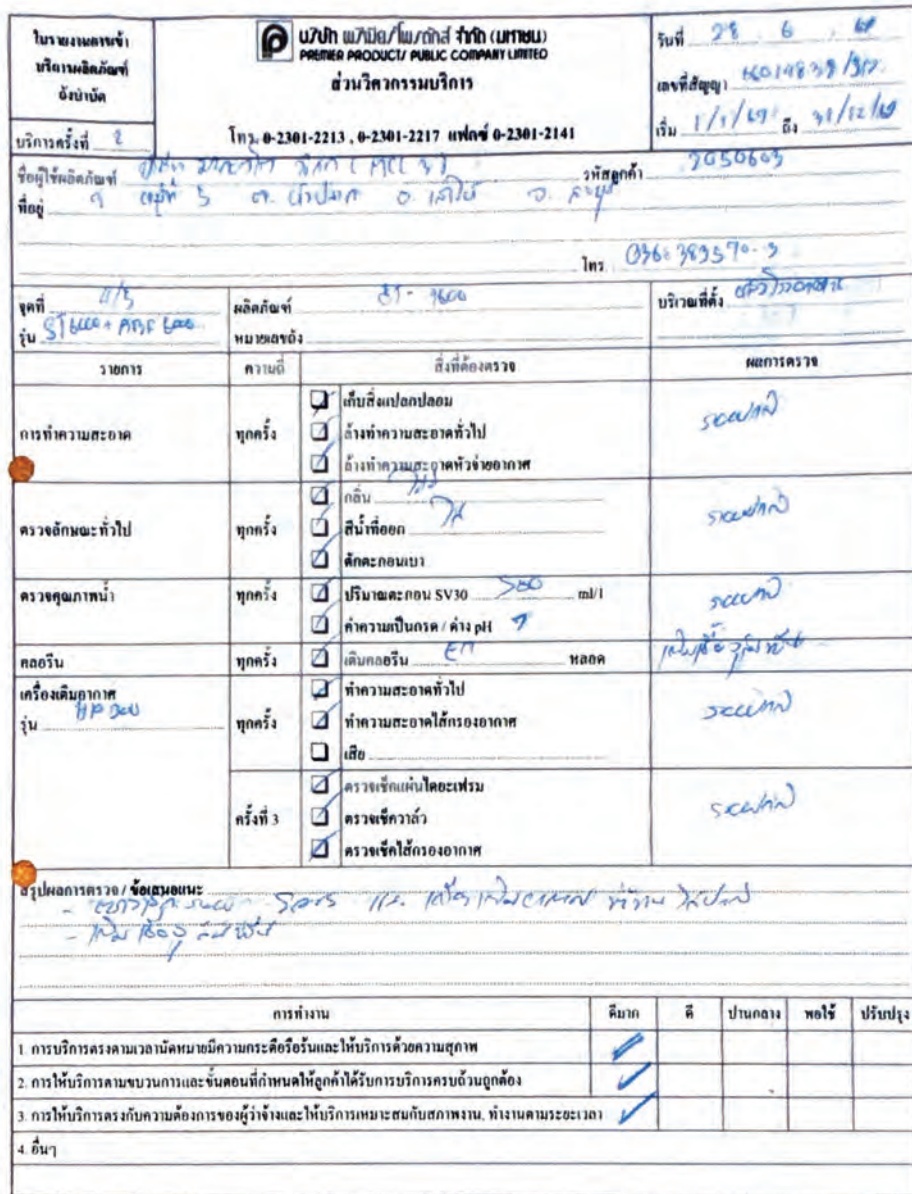 ใบรายงานการเข้า
บริการผลิตภัณฑ์
ถังบำบัด
บริการครั้งที่ 2
บริษัท พรีเมียร์ โพรดักส์ จำกัด (มหาชน)
PREMIER PRODUCTS PUBLIC COMPANY LIMITED
ส่วนวิศวกรรมบริการ
โทร. 0-2301-2213 , 0-2301-2217 แฟกซ์ 0-2301-2141
วันที่ 28 6
เลขที่สัญญา
เริ่ม 1/1/69 ถึง 31/12/69
ชื่อผู้ใช้ผลิตภัณฑ์
รหัสลูกค้า 2050603
ที่อยู่ 9 หมู่ที่ 5 ต. อ. จ.
โทร 036-383570-3
จุดที่ 4/5
รุ่น
ผลิตภัณฑ์
หมายเลขถัง
บริเวณที่ตั้ง
รายการ ความถี่ สิ่งที่ต้องตรวจ ผลการตรวจ
การทำความสะอาด ทุกครั้ง
เก็บสิ่งแปลกปลอม
ล้างทำความสะอาดทั่วไป
ล้างทำความสะอาดหัวจ่ายอากาศ
ระบบปกติ
ตรวจลักษณะทั่วไป ทุกครั้ง
กลิ่น
สีน้ำที่ออก ใส
ตักตะกอนเบา
ระบบปกติ
ตรวจคุณภาพน้ำ ทุกครั้ง
ปริมาณตะกอน SV30 ml/l
ค่าความเป็นกรด / ด่าง pH 7
ระบบปกติ
คลอรีน ทุกครั้ง เติมคลอรีน EM หลอด
เครื่องเติมอากาศ
รุ่น HP 200
ทุกครั้ง
ทำความสะอาดทั่วไป
ทำความสะอาดไส้กรองอากาศ
เสีย
ระบบปกติ
ครั้งที่ 3
ตรวจเช็คแผ่นไดอะเฟรม
ตรวจเช็ควาล์ว
ตรวจเช็คไส้กรองอากาศ
ระบบปกติ
สรุปผลการตรวจ / ข้อเสนอแนะ
การทำงาน ดีมาก ดี ปานกลาง พอใช้ ปรับปรุง
1. การบริการตรงตามเวลานัดหมายมีความกระตือรือร้นและให้บริการด้วยความสุภาพ
2. การให้บริการตามขบวนการและขั้นตอนที่กำหนดให้ลูกค้าได้รับการบริการครบถ้วนถูกต้อง
3. การให้บริการตรงกับความต้องการของผู้ว่าจ้างและให้บริการเหมาะสมกับสภาพงาน, ทำงานตามระยะเวลา
4. อื่นๆ